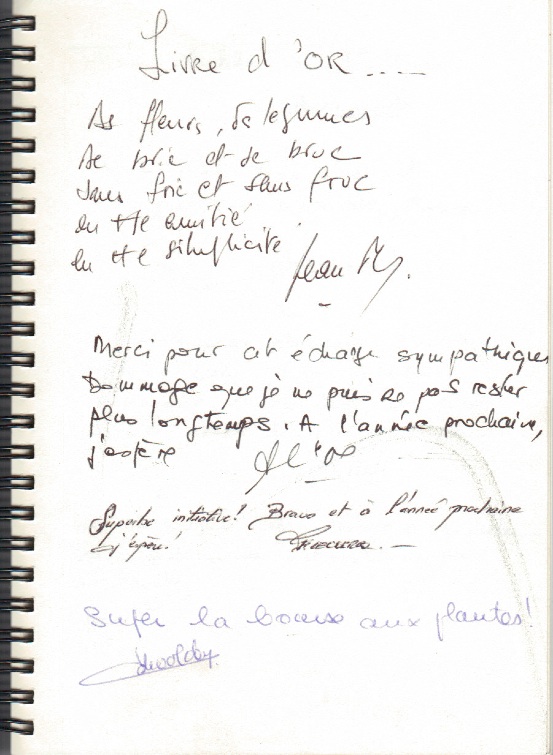 Livre d'OR.....
de fleurs, de legumes
de bric et de broc
sans fric et sans froc
en tte amitié
en tte simplicité. Jean
Merci pour cet échange sympathique
Dommage que je ne puisse pas rester
plus longtemps. A l'année prochaine,
j'espère
Superbe initiative! Bravo et à l'année prochaine
j'espère!
Super la bourse aux plantes!